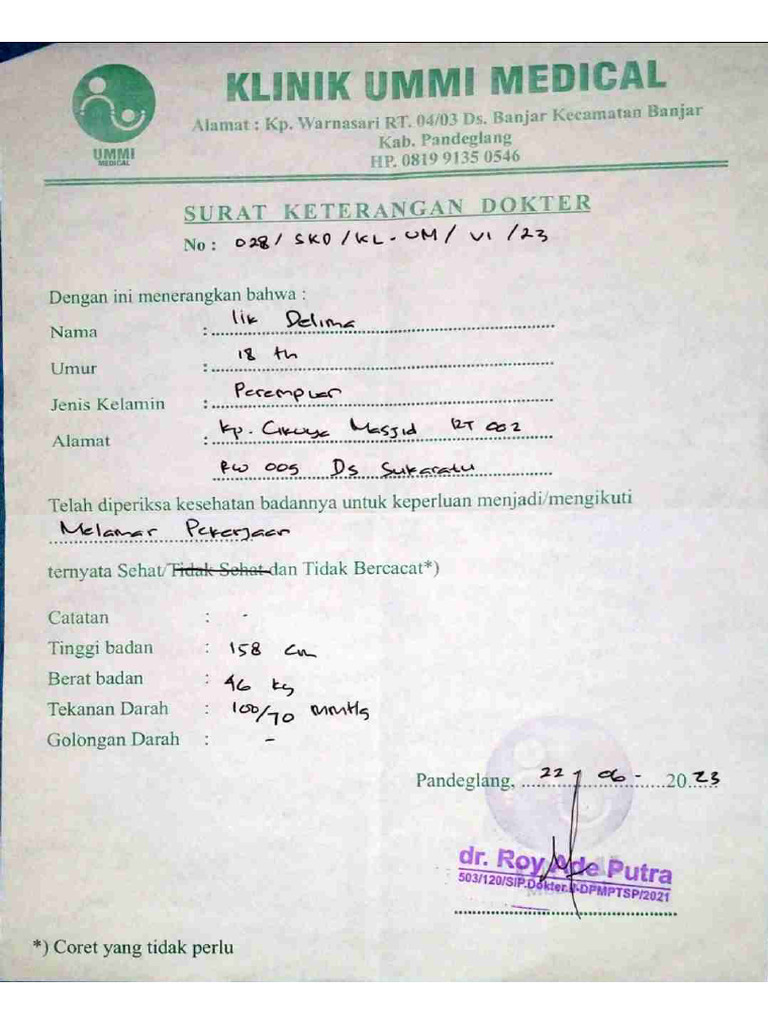 KLINIK UMMI MEDICAL
Alamat : Kp. Warnasari RT. 04/03 Ds. Banjar Kecamatan Banjar
Kab. Pandeglang
HP. 0819 9135 0546
UMMI
MEDICAL
SURAT KETERANGAN DOKTER
No : 028 / SKD / KL-UM / VI / 23
Dengan ini menerangkan bahwa :
Nama : Iik Delima
Umur : 18 th
Jenis Kelamin : Perempuan
Alamat : Kp. Cikuya Masjid RT 002
RW 005 Ds Sukaratu
Telah diperiksa kesehatan badannya untuk keperluan menjadi/mengikuti
Melamar Pekerjaan
ternyata Sehat/Tidak Sehat dan Tidak Bercacat*)
Catatan : -
Tinggi badan : 158 cm
Berat badan : 46 kg
Tekanan Darah : 100/70 mmHg
Golongan Darah : -
Pandeglang, 22 - 06 - 2023
dr. Roy Ade Putra
503/120/SIP.Dokter.II-DPMPTSP/2021
*) Coret yang tidak perlu